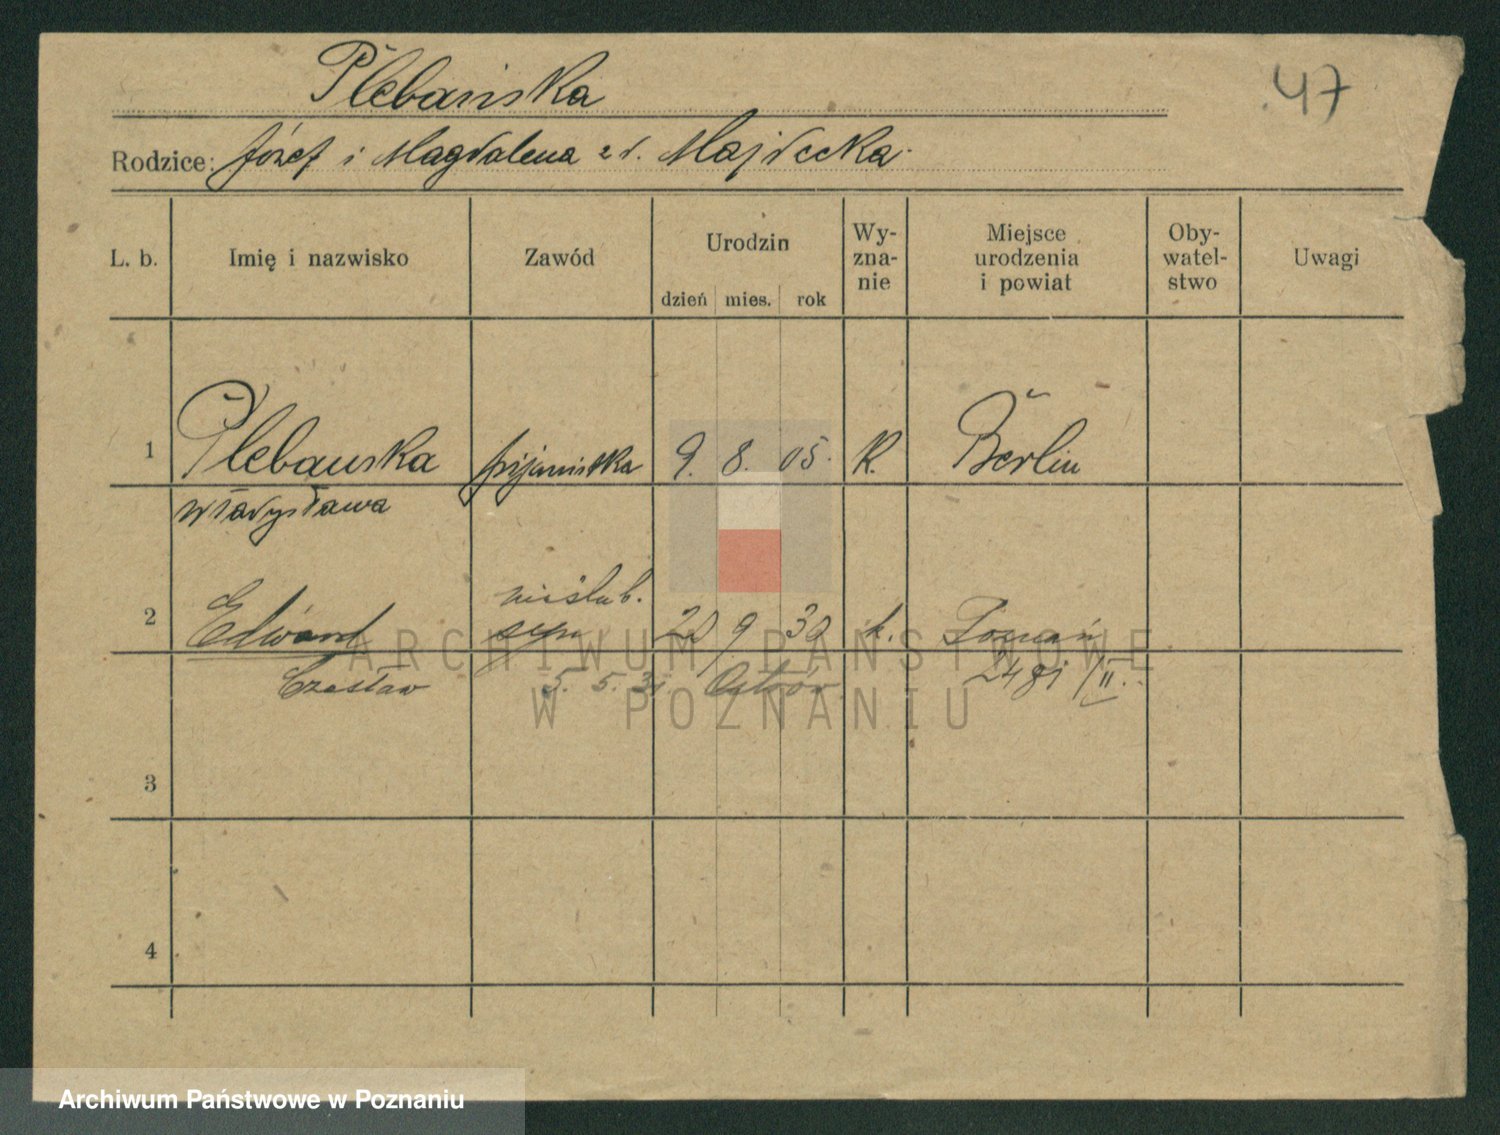 Plebańska
47
Rodzice: Józef i Magdalena z d. Majdecka.
L. b. Imię i nazwisko Zawód Urodzin dzień mies. rok Wy-zna-nie Miejsce urodzenia i powiat Oby-watel-stwo Uwagi
1 Plebańska pijanistka 9. 8. 05. K. Berlin
Władysława
nieślub.
2 Edward syn 20 9 30 k. Poznań
Czesław 5. 5. 31 Ostrów /II.
3
4
ARCHIWUM PAŃSTWOWE
W POZNANIU
Archiwum Państwowe w Poznaniu